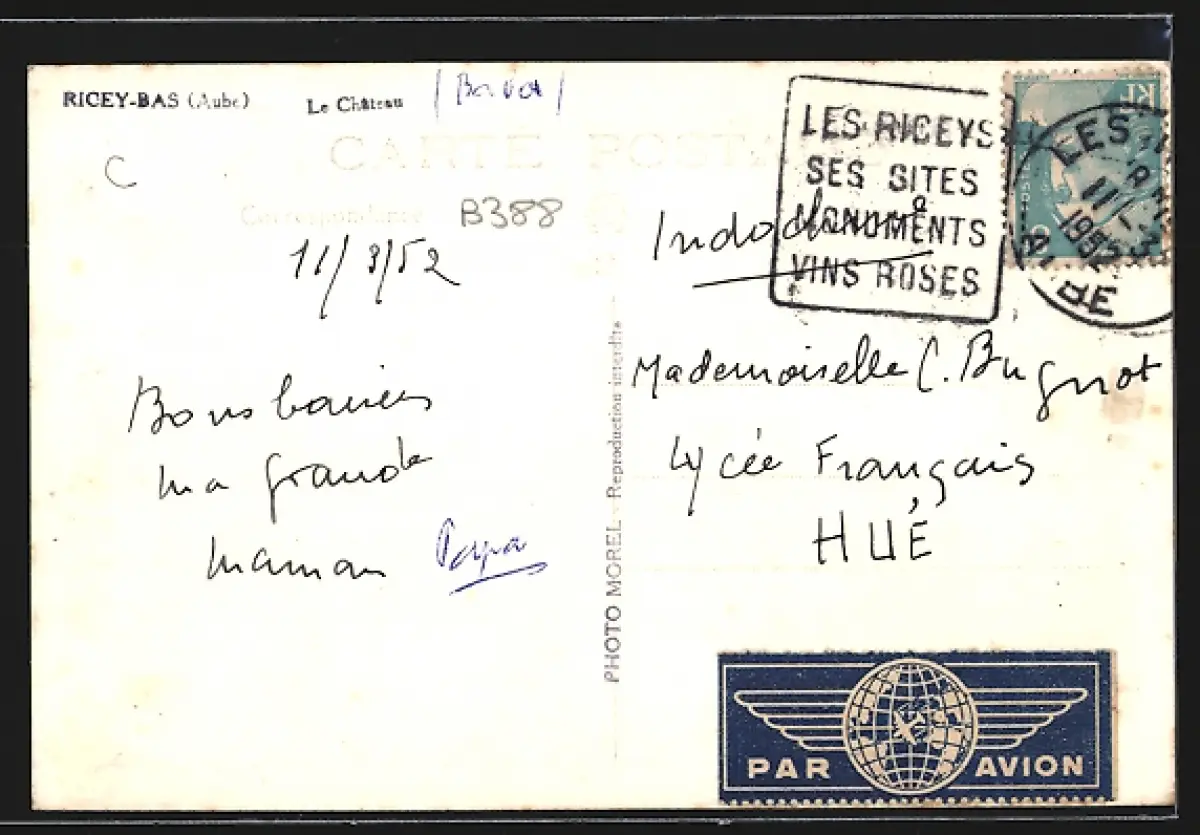 RICEY-BAS (Aube) Le Château
CARTE POSTALE
C
Correspondance
B388
11/3/52
Bons baisers
ma grande
maman Papa
PHOTO MOREL - Reproduction interdite
LES RICEYS
SES SITES
MONUMENTS
VINS ROSES
RF
LES
11-3
1952
AUBE
Mademoiselle C. Bugnot
Lycée Français
HUÉ
PAR AVION